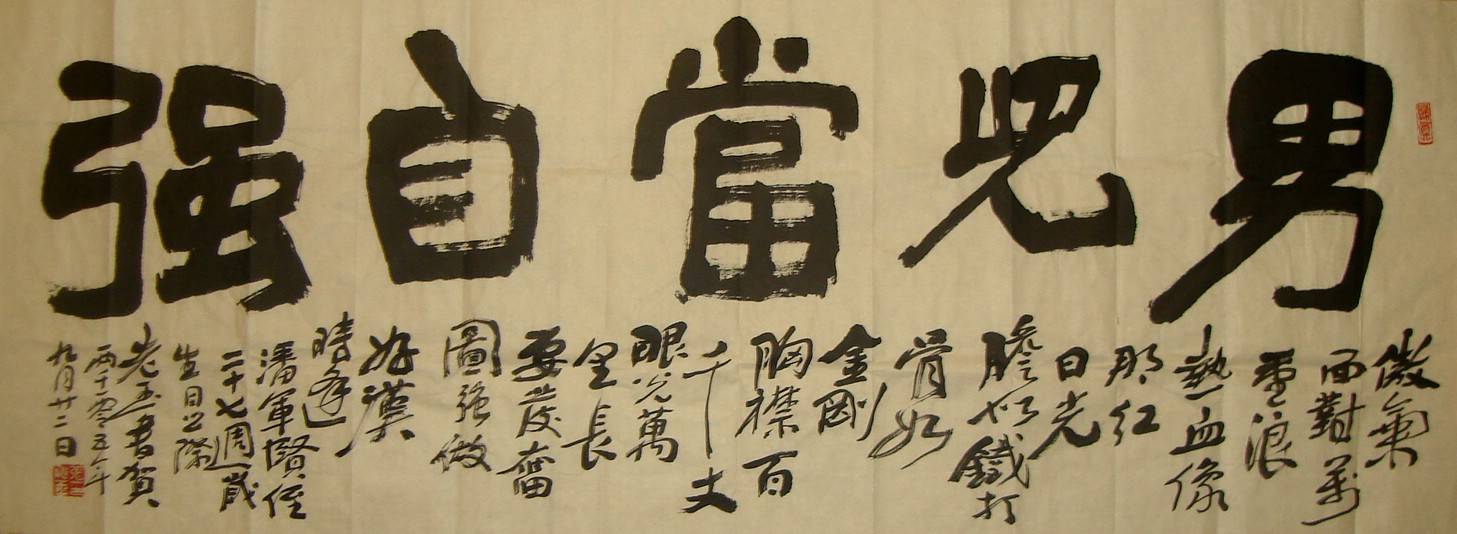 男兒當自强
傲氣
面對萬
重浪
熱血像
那紅
日光
膽似鐵打
骨如
金剛
胸襟百
千丈
眼光萬
里長
要發奮
圖强做
好漢
時逢
潘軍賢侄
二十七週歲
生日之際
書賀
兩千零五年
九月廿二日